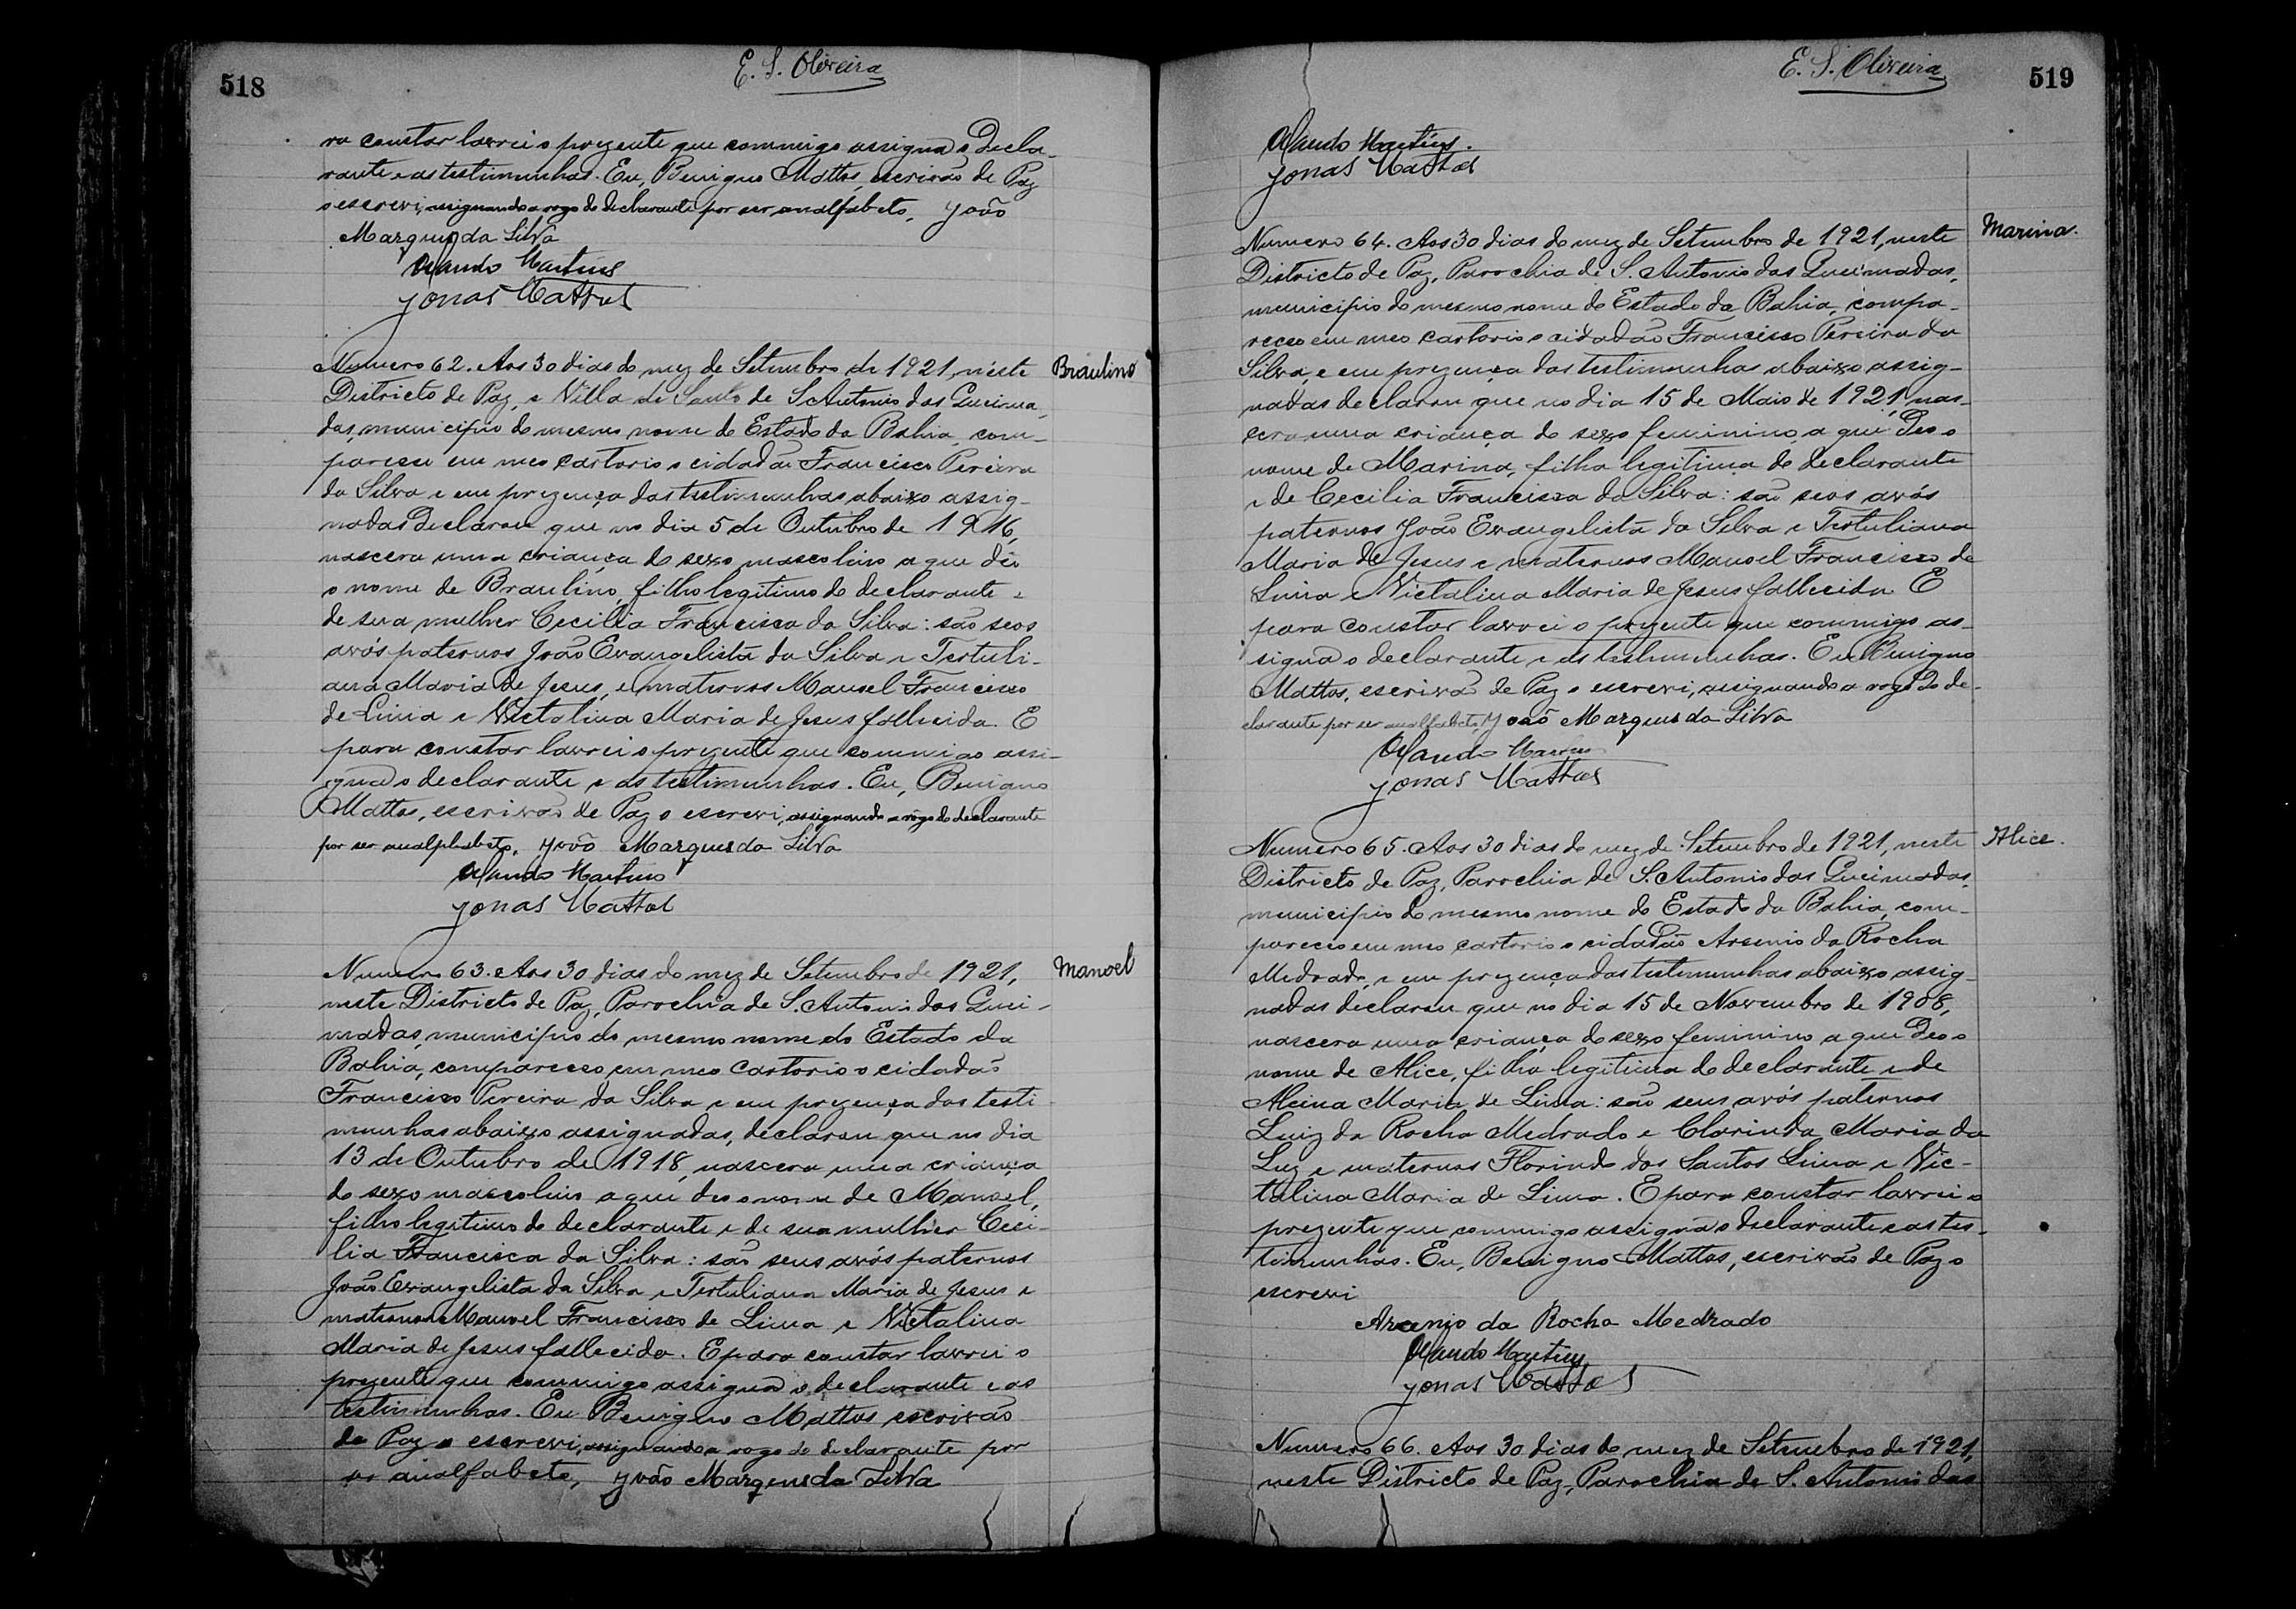 518
E. S. Oliveira
ra constar lavrei o prezente que commigo assigna o decla-
rante e as testimunhas. Eu, Benigno Mattos, escrivão de Paz
o escrevi, assignando a rogo do declarante por ser analfabeto, João
Marques da Silva
Orlando Martins
Jonas Mattos
Numero 62. Aos 30 dias do mez de Setembro de 1921, neste
Braulino
Districto de Paz, e Villa de S. Antonio das Queima-
das, municipio do mesmo nome do Estado da Bahia, com-
pareceu em meo cartorio o cidadão Francisco Pereira
da Silva e em prezença das testimunhas abaixo assig-
nadas declarou que no dia 5 de Outubro de 1916,
nascera uma criança do sexo mascolino a que deo
o nome de Braulino, filho legitimo do declarante e
de sua mulher Cecilia Francisca da Silva: são seos
avós paternos João Evangelista da Silva e Tertuli-
ana Maria de Jesus, e maternos Manoel Francisco
de Lima e Victalina Maria de Jesus fallecida. E
para constar lavrei o prezente que commigo assi-
gna o declarante e as testimunhas. Eu, Benigno
Mattos, escrivão de Paz o escrevi, assignando a rogo do declarante
por ser analphabeto, João Marques da Silva
Orlando Martins
Jonas Mattos
Numero 63. Aos 30 dias do mez de Setembro de 1921,
Manoel
neste Districto de Paz, Parochia de S. Antonio das Quei-
madas, municipio do mesmo nome do Estado da
Bahia, compareceo em meo cartorio o cidadão
Francisco Pereira da Silva e em prezença das testi-
munhas abaixo assignadas, declarou que no dia
13 de Outubro de 1918, nascera uma criança
do sexo mascolino a que deo o nome de Manoel,
filho legitimo do declarante e de sua mulher Ceci-
lia Francisca da Silva: são seus avós paternos
João Evangelista da Silva e Tertuliana Maria de Jesus e
maternos Manoel Francisco de Lima e Victalina
Maria de Jesus fallecida. E para constar lavrei o
prezente que commigo assigna o declarante e as
testimunhas. Eu Benigno Mattos escrivão
de Paz o escrevi, assignando a rogo do declarante por
ser analfabeto, João Marques da Silva
E. S. Oliveira
519
Orlando Martins.
Jonas Mattos
Numero 64. Aos 30 dias do mez de Setembro de 1921, neste
Marina.
Districto de Paz, Parochia de S. Antonio das Queimadas,
municipio do mesmo nome do Estado da Bahia, compa-
receo em meo cartorio o cidadão Francisco Pereira da
Silva, e em prezença das testimunhas abaixo assig-
nadas declarou que no dia 15 de Maio de 1921, nas-
cera uma criança do sexo feminino, a que deo o
nome de Marina, filha legitima do declarante
e de Cecilia Francisca da Silva: são seos avós
paternos João Evangelista da Silva e Tertuliana
Maria de Jesus e maternos Manoel Francisco de
Lima e Victalina Maria de Jesus fallecida. E
para constar lavrei o prezente que commigo as-
signa o declarante e as testimunhas. Eu Benigno
Mattos, escrivão de Paz o escrevi, assignando a rogo do de-
clarante por ser analfabeto, João Marques da Silva
Orlando Martins
Jonas Mattos
Numero 65. Aos 30 dias do mez de Setembro de 1921, neste
Alice.
Districto de Paz, Parochia de S. Antonio das Queimadas,
municipio do mesmo nome do Estado da Bahia, com-
pareceo em meo cartorio o cidadão Arsenio da Rocha
Medrado, e em prezença das testimunhas abaixo assig-
nadas declarou que no dia 15 de Novembro de 1908,
nascera uma criança do sexo feminino a que deo o
nome de Alice, filha legitima do declarante e de
Alcina Maria de Lima: são seus avós paternos
Luiz da Rocha Medrado e Clarinda Maria da
Luz e maternos Florindo dos Santos Lima e Vic-
talina Maria de Lima. E para constar lavrei o
prezente que commigo assigna o declarante e as tes-
timunhas. Eu, Benigno Mattos, escrivão de Paz o
escrevi
Arcenjo da Rocha Medrado
Orlando Martins
Jonas Mattos
Numero 66. Aos 30 dias do mez de Setembro de 1921,
neste Districto de Paz, Parochia de S. Antonio das